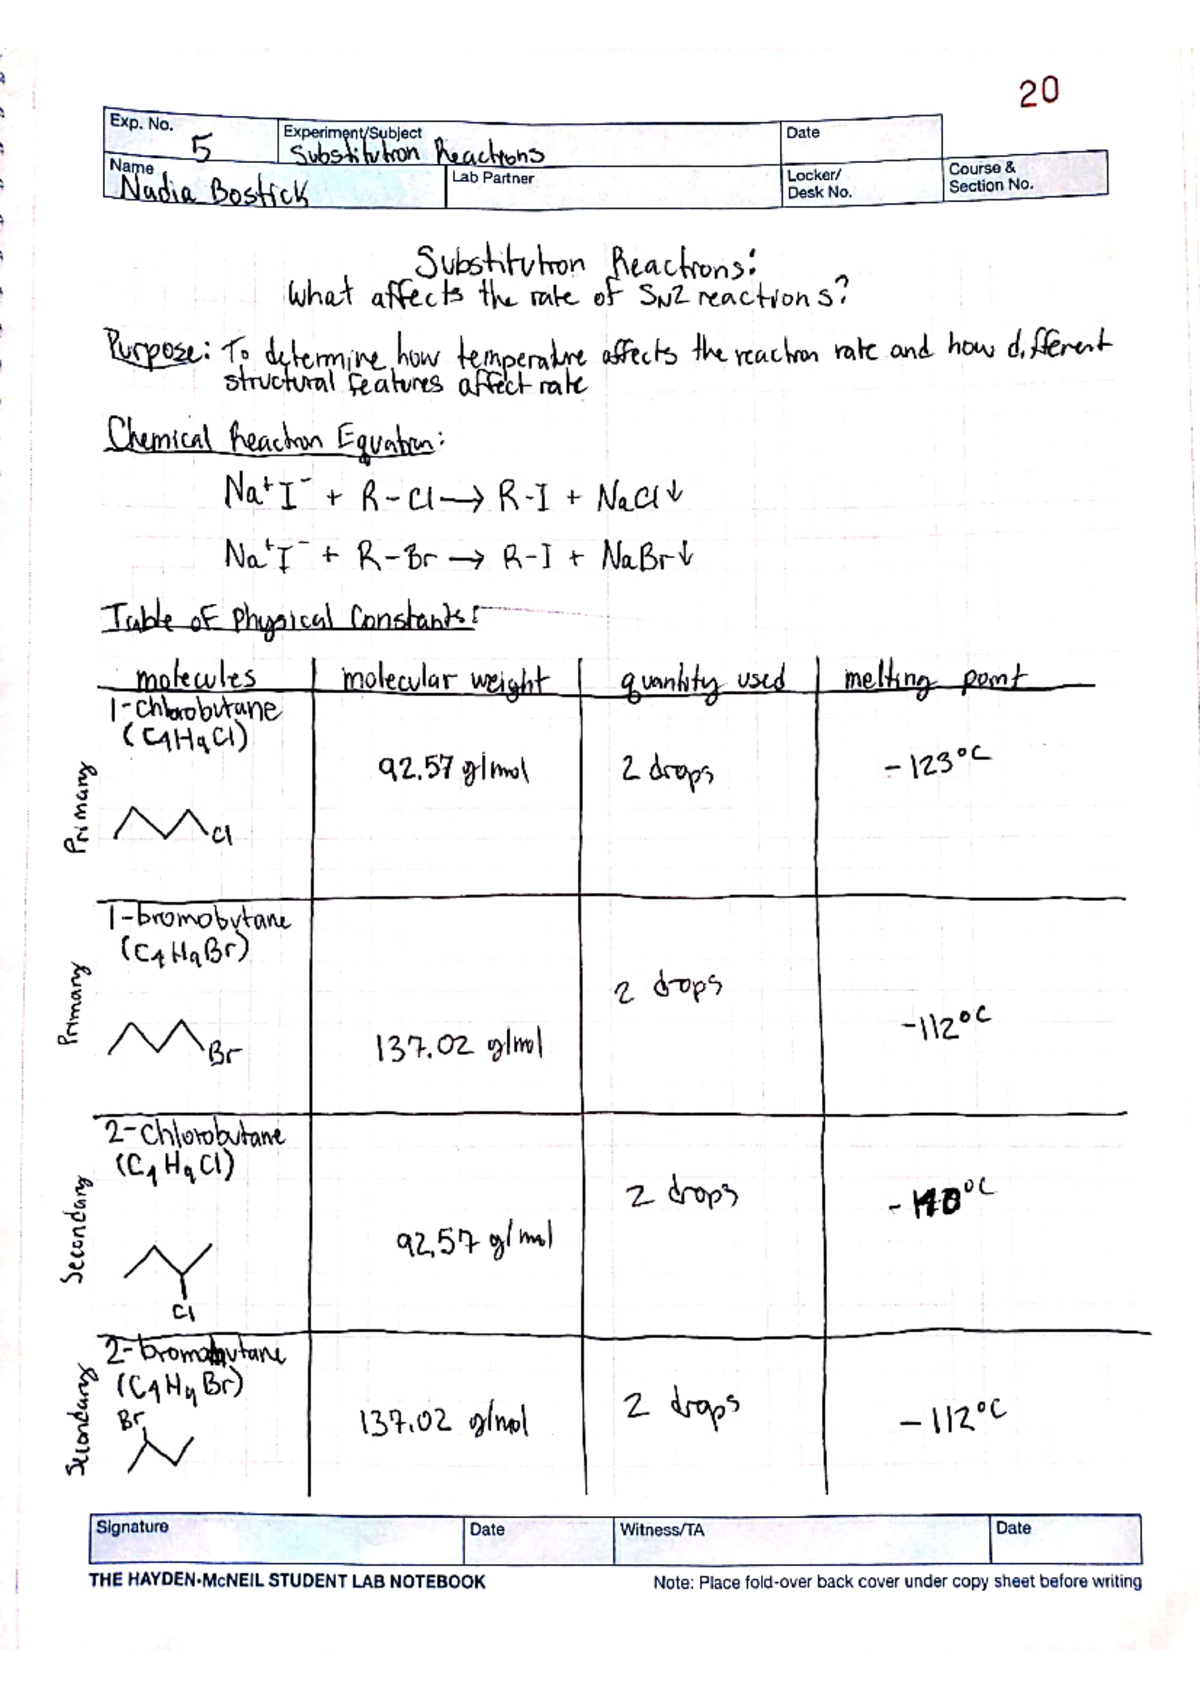 20
Exp. No. 5
Experiment/Subject Substitution Reactions
Date
Name Nadia Bostick
Lab Partner
Locker/ Desk No.
Course & Section No.
Substitution Reactions:
What affects the rate of SN2 reactions?
Purpose: To determine how temperature affects the reaction rate and how different
structural features affect rate
Chemical Reaction Equation:
Na⁺I⁻ + R-Cl → R-I + NaCl↓
Na⁺I⁻ + R-Br → R-I + NaBr↓
Table of Physical Constants:
molecules molecular weight quantity used melting point
Primary
1-chlorobutane
(C4H9Cl)
92.57 g/mol 2 drops -123°C
Cl
Primary
1-bromobutane
(C4H9Br)
2 drops
137.02 g/mol -112°C
Br
Secondary
2-chlorobutane
(C4H9Cl)
2 drops -140°C
92.57 g/mol
Cl
Secondary
2-bromobutane
(C4H9Br)
Br
137.02 g/mol 2 drops -112°C
Signature
Date
Witness/TA
Date
THE HAYDEN-McNEIL STUDENT LAB NOTEBOOK
Note: Place fold-over back cover under copy sheet before writing